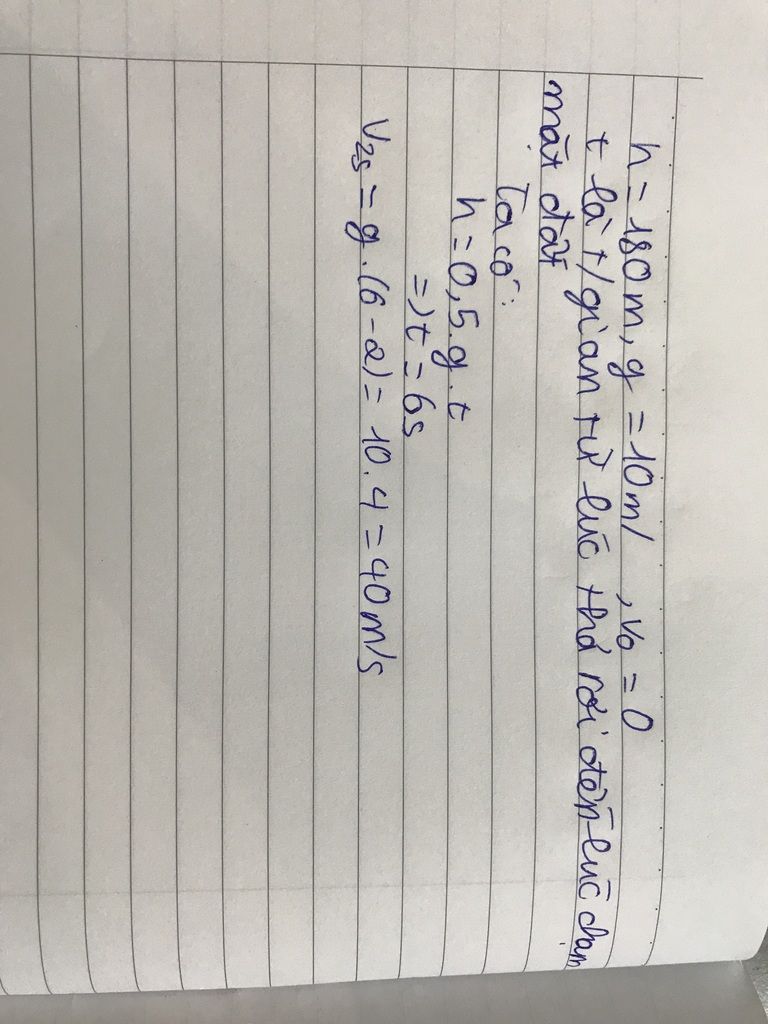 h = 180m, g = 10m/ , v₀ = 0
t là t/gian từ lúc thả rơi đến lúc chạm
mặt đất
Ta có:
h = 0,5.g.t
=) t = 6s
V₂ₛ = g.(6-2) = 10.4 = 40m/s